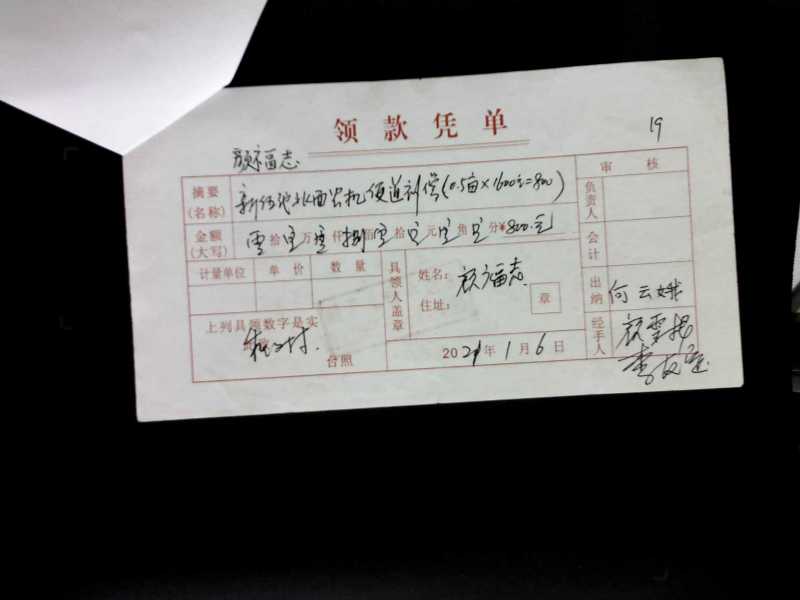 领款凭单
19
颜福志
审核
摘要(名称) 新伍池水西农机便道补偿(0.5亩×1600元=800) 负责人
金额(大写) 零拾零万零仟捌佰零拾零元零角零分¥800.元 会计
计量单位 单价 数量 具领人盖章 姓名: 颜福志 出纳 何云娥
住址: 章
上列具领数字是实
台照 2021年1月6日 经手人